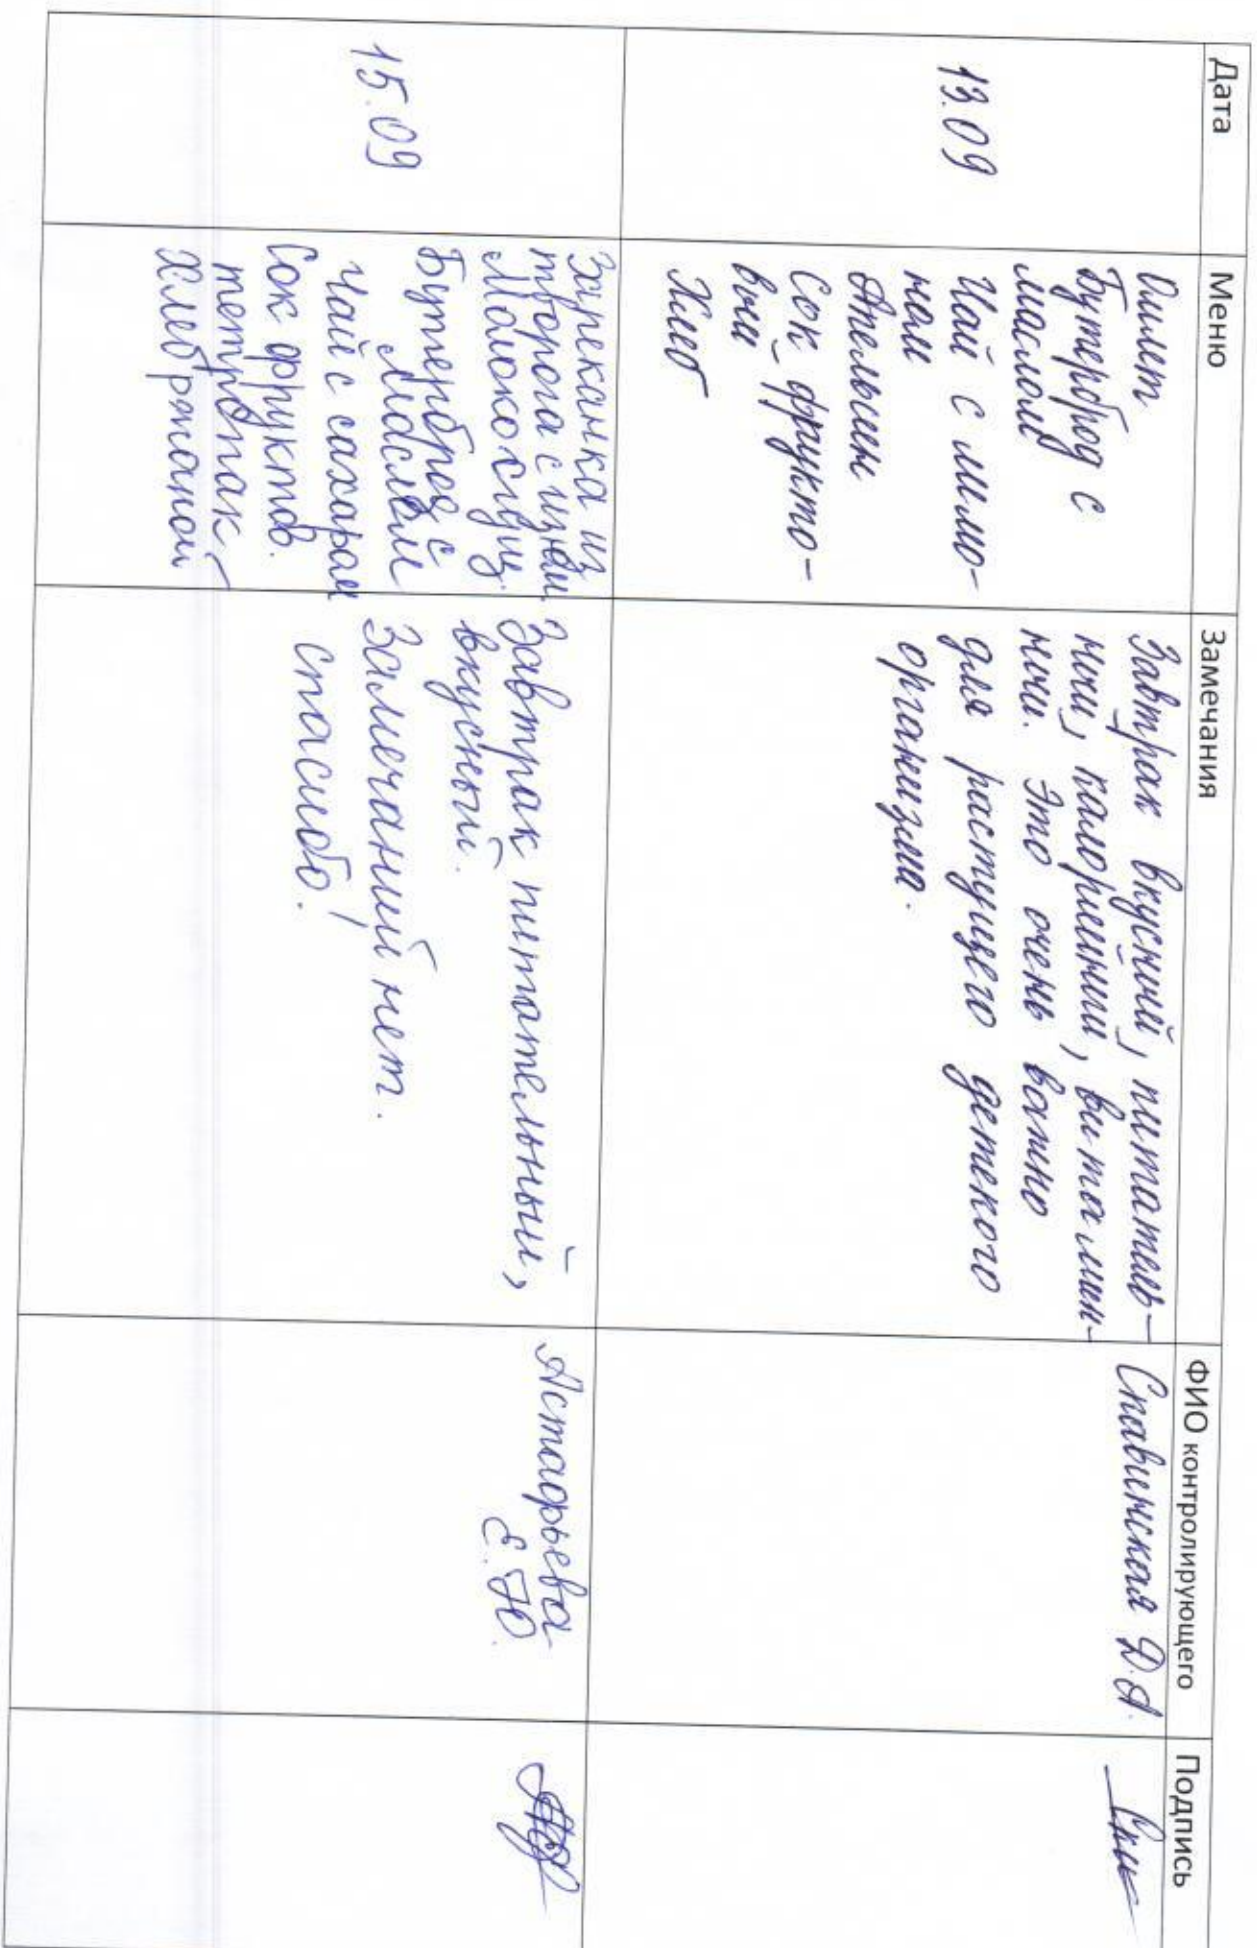 Дата
Меню
Замечания
ФИО контролирующего
Подпись
13.09
Омлет
Бутерброд с
маслом
Чай с лимо-
ном
Апельсин
Сок фрукто-
вый
Хлеб
Завтрак вкусный, питатель-
ный, калорийный, витамин-
ный. Это очень важно
для растущего детского
организма.
Славинская Д.А.
15.09
Запеканка из
творога с изюм.
Молоко сгущ.
Бутерброд с
маслом
Чай с сахаром
Сок фруктов.
тетропак
Хлеб ржаной
Завтрак питательный,
вкусный.
Замечаний нет.
Спасибо!
Астафьева
Е.Ю.